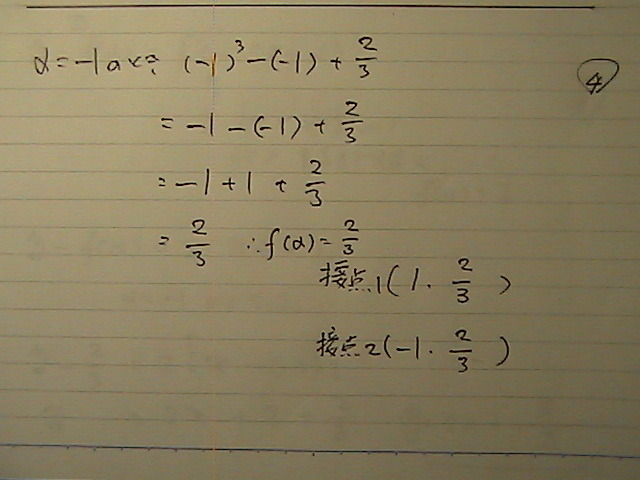 α=-1のとき (-1)³-(-1)+2/3
④
=-1-(-1)+2/3
=-1+1+2/3
=2/3 ∴f(α)=2/3
接点1(1.2/3)
接点2(-1.2/3)